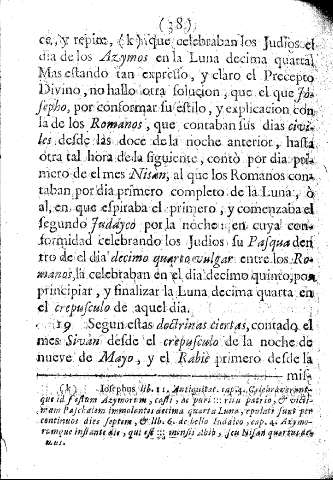 (38)
ce, y repite, (k) que celebraban los Judios el
dia de los Azymos en la Luna decima quarta
Mas estando tan expresso, y claro el Precepto
Divino, no hallo otra solucion, que el que Jo-
sepho, por conformar su estilo, y explicacion con
la de los Romanos, que contaban sus dias civi-
les desde las doce de la noche anterior, hasta
otra tal hora de la siguiente, contò por dia pri-
mero de el mes Nisan, al que los Romanos con-
taban por dia primero completo de la Luna, ò
al, en que espiraba el primero, y comenzaba el
segundo Judàyco por la noche: en cuya con-
formidad celebrando los Judios su Pasqua den
tro de el dia decimo quarto vulgar entre los Ro-
manos, la celebraban en el dia decimo quinto, por
principiar, y finalizar la Luna decima quarta en
el crepusculo de aquel dia.
19 Segun estas doctrinas ciertas, contado el
mes Sivan desde el crepusculo de la noche de
nueve de Mayo, y el Rabiè primero desde la
mis-
(k) Iosephus lib. 11. Antiquitat. cap. 4. Celebraverunt-
que id festum Azymorum, casti, ac puri ::: ritu patrio, & victi-
mam Paschalem immolantes decima quarta Luna, epulati sunt per
continuos dies septem, & lib. 6. de bello Iudaico, cap. 4. Azymo-
rumque instante die, qui est ::: mensis Abib, seu Nisan quartus de-
mus.